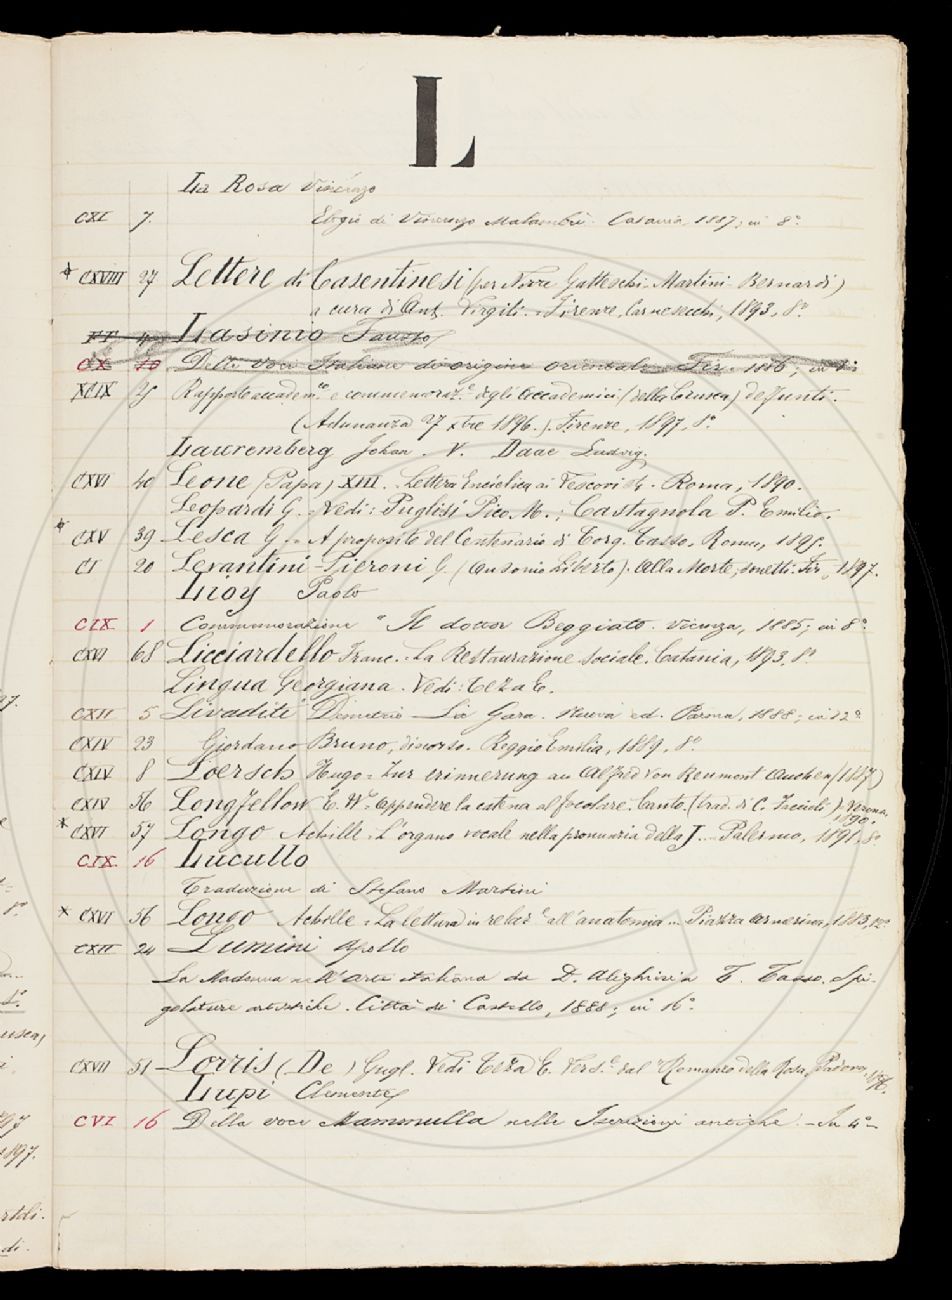 L
La Rosa Vincenzo
CXI 7. Elogio di Vincenzo Catania, 1887; in 8º
* CXVIII 27 Lettere di Casentinesi (per Nozze Gatteschi-Martini-Bernardi)
a cura di Ant. Virgili. Firenze, Carnesecchi, 1893, 8º
4 Lasinio Fausto
CX 10 Delle voci Italiane di origine orientale Fir. 1886; in
XCIX 25 Rapporto accadem.co e commemoraz.e degli Accademici (della Crusca) defunti.
(Adunanza 27 xbre 1896.). Firenze, 1897, 8º
Lauremberg Johan. V. Daae Ludvig.
CXVI 40 Leone (Papa) XIII. Lettera Enciclica ai Vescovi Roma, 1890.
Leopardi G. Vedi: Puglisi Pico M.; Castagnola P. Emilio.
* CXV 39 Lesca G. A proposito del Centenario di Torq. Tasso. Roma, 1895.
CI 20 Levantini-Pieroni G. (Ausonio Liberto). Alla Morte, sonetti. Fir., 1897.
Lioy Paolo
CIX 1 Commemorazione Il dottor Beggiato. Vicenza, 1885; in 8º
CXVI 68 Licciardello Franc. La Restaurazione sociale. Catania, 1893, 8º
Lingua Georgiana. Vedi: Teza E.
CXII 5 Livaditi Demetrio La Gara. Nuova ed. Parma, 1888; in 12º
CXIV 23 Giordano Bruno, discorso. Reggio Emilia, 1889, 8º
CXIV 8 Loersch Hugo = Zur erinnerung an Alfred von Reumont Aachen (1887)
CXIV 56 Longfellow E. W. Appendere la catena al focolare. Canto. (trad. di C. Faccioli). Verona, 1890.
* CXVI 57 Longo Achille. L'organo vocale nella pronunzia della J... Palermo, 1891, 8º
CIX. 16 Lucullo
Traduzione di Stefano Martini
* CXVI 56 Longo Achille. La lettura in relaz.e all'anatomia... Piazza Armerina, 1883, 12º
CXII 24 Lumini Apollo
La Madonna nell'arte italiana da D. Alighieri a T. Tasso. Spi-
golature artistiche. Città di Castello, 1888; in 16º
CXVII 51 Lorris (De) Gugl. Vedi Teza E. Vers.e dal Romanzo della Rosa. Padova,
Lupi Clemente
CVI 16 Della voce Mammulla nelle Iscrizioni antiche. - In 4º -